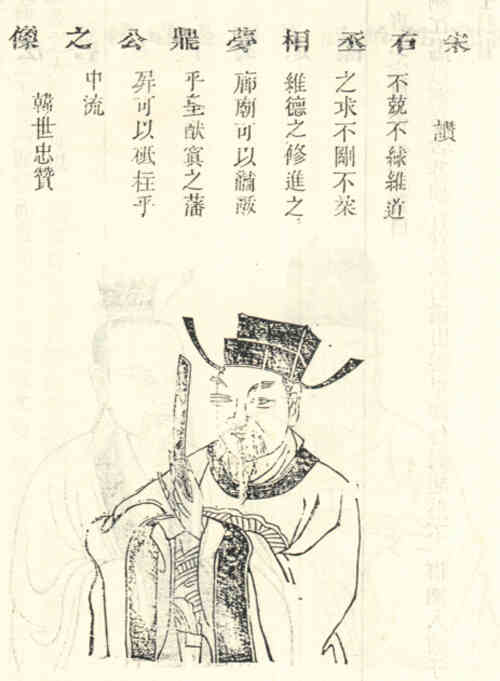 宋右丞相夢鼎公之像
讚
不兢不絿維道
之求不剛不柔
維德之修進之
廊廟可以黼黻
乎皇猷寘之藩
屏可以砥柱乎
中流
韓世忠贊